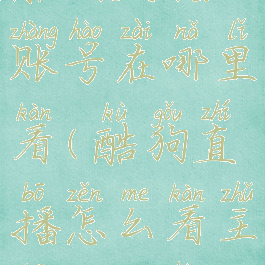 zhàng hào zài nǎ lǐ
账号在哪里
kàn kù gǒu zhí
看(酷狗直
bō zěn me kàn zhǔ
播怎么看主